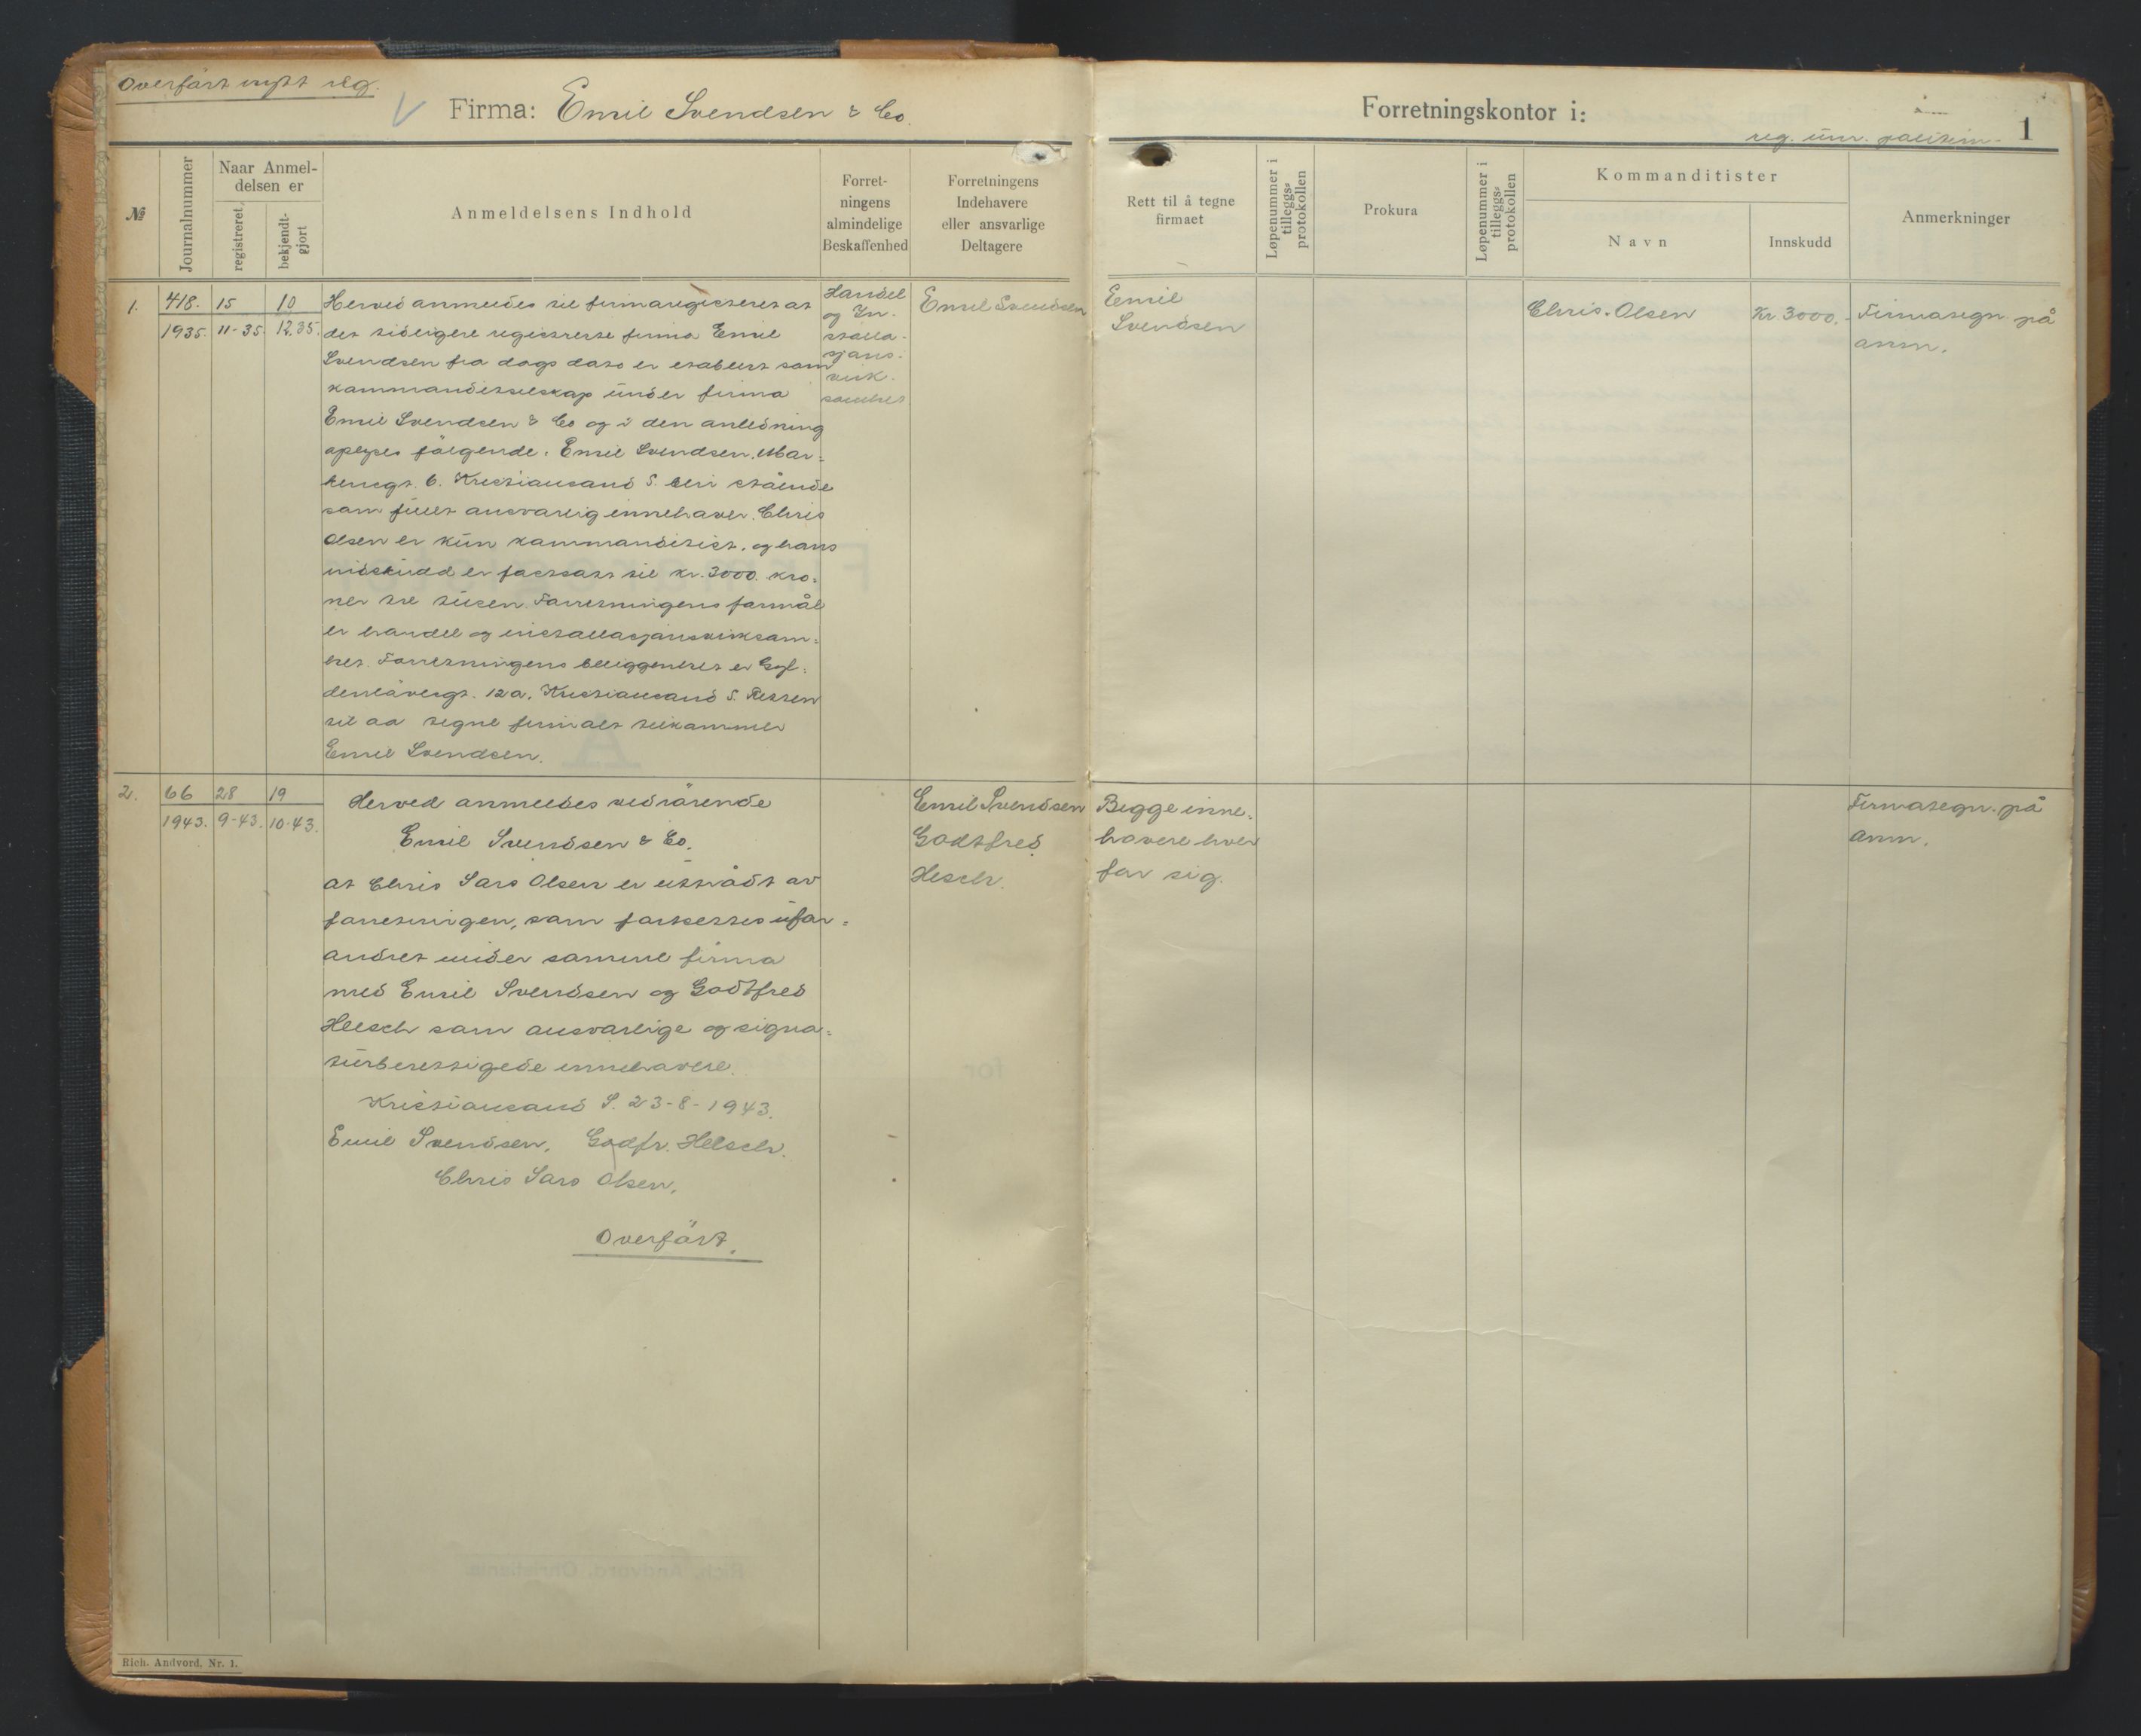 Overført nytt reg.
Firma: Emil Svendsen & Co.
Forretningskontor i:
reg.
1
№
Journalnummer
Naar Anmel-
delsen er
registreret
bekjendt-
gjort
Anmeldelsens Indhold
Forret-
ningens
almindelige
Beskaffenhed
Forretningens
Indehavere
eller ansvarlige
Deltagere
Rett til å tegne
firmaet
Løpenummer i
tilleggs-
protokollen
Prokura
Løpenummer i
tilleggs-
protokollen
Kommanditister
Navn
Innskudd
Anmerkninger
1.
418.
1935.
15
11-35
10
12.35.
Herved anmeldes til firmaregisteret at
det tidligere registrerte firma Emil
Svendsen fra dags dato er etablert som
kommandittselskap under firma
Emil Svendsen & Co og i den anledning
oplyses følgende. Emil Svendsen. Mar-
kensgt. 6. Kristiansand S. blir stående
som fullt ansvarlig innehaver. Chris
Olsen er kun kommanditist, og hans
innskudd er fastsatt til kr. 3000. kro-
ner tre tusen. Forretningens formål
er handel og installasjonsvirksom-
het. Forretningens beliggenhet er Gyl-
denløvesgt. 12a, Kristiansand S. Retten
til aa tegne firmaet tilkommer
Emil Svendsen.
Handel
og In-
stalla-
sjons-
virk-
somhet
Emil Svendsen
Emil
Svendsen
Chris. Olsen
Kr 3000.-
Firmategn. på
anm.
2.
66
1943.
28
9-43.
19
10-43.
Herved anmeldes vedrørende
Emil Svendsen & Co.
at Chris Sars Olsen er uttrådt av
forretningen, som fortsettes ufor-
andret under samme firma
med Emil Svendsen og Godtfred
Hlesch som ansvarlige og signa-
turberettigede innehavere.
Kristiansand S. 23-8-1943.
Emil Svendsen. Godfr. Helsch.
Chris Sars Olsen.
Overført.
Emil Svendsen
Godtfred
Hesch.
Begge inne-
havere hver
for sig.
Firmategn. på
anm.
Rich. Andvord. Nr. 1.